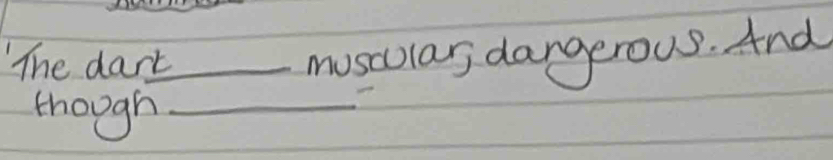 'The dart_____ muscular, dangerous. And
though_________